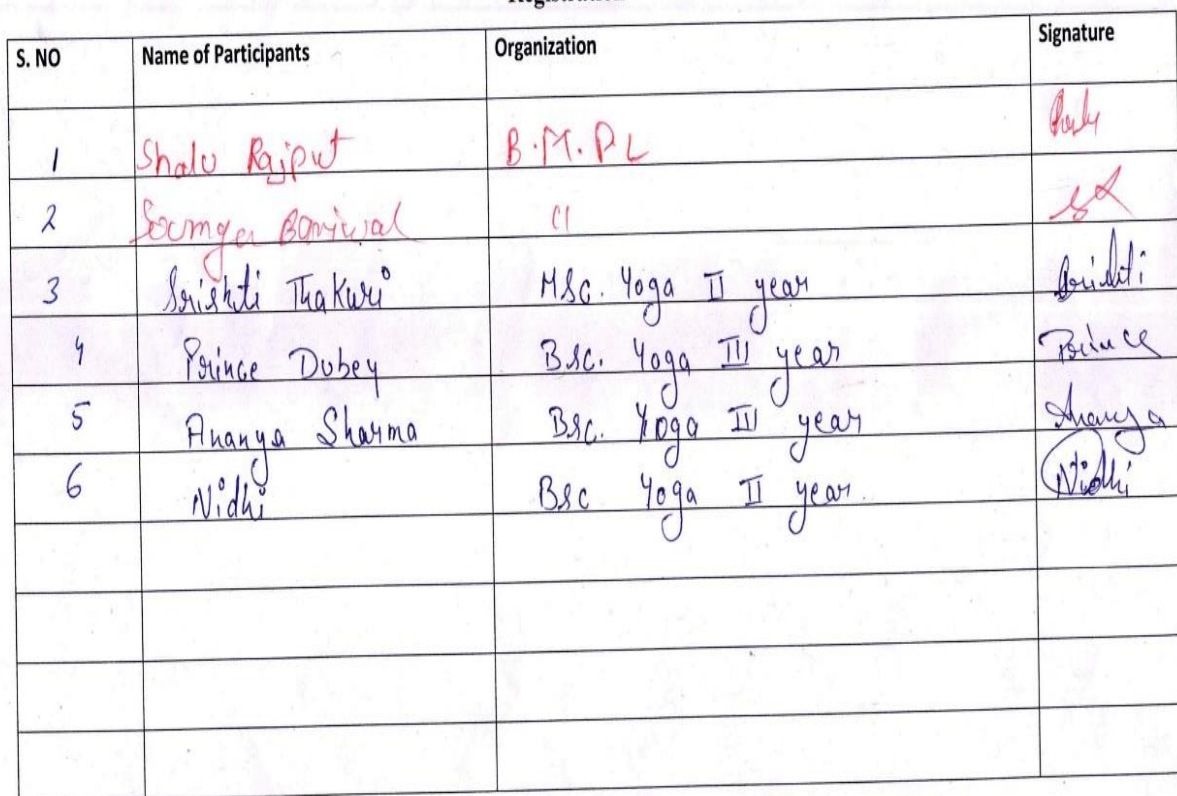 S. NO Name of Participants Organization Signature
1 Shalu Rajput B.M.PL
2 "
3 Srishti Thakuri MSc. Yoga II year Srishti
4 Prince Dubey Bsc. Yoga III year Prince
5 Ananya Sharma Bsc. Yoga III year Ananya
6 Nidhi Bsc Yoga II year. Nidhi